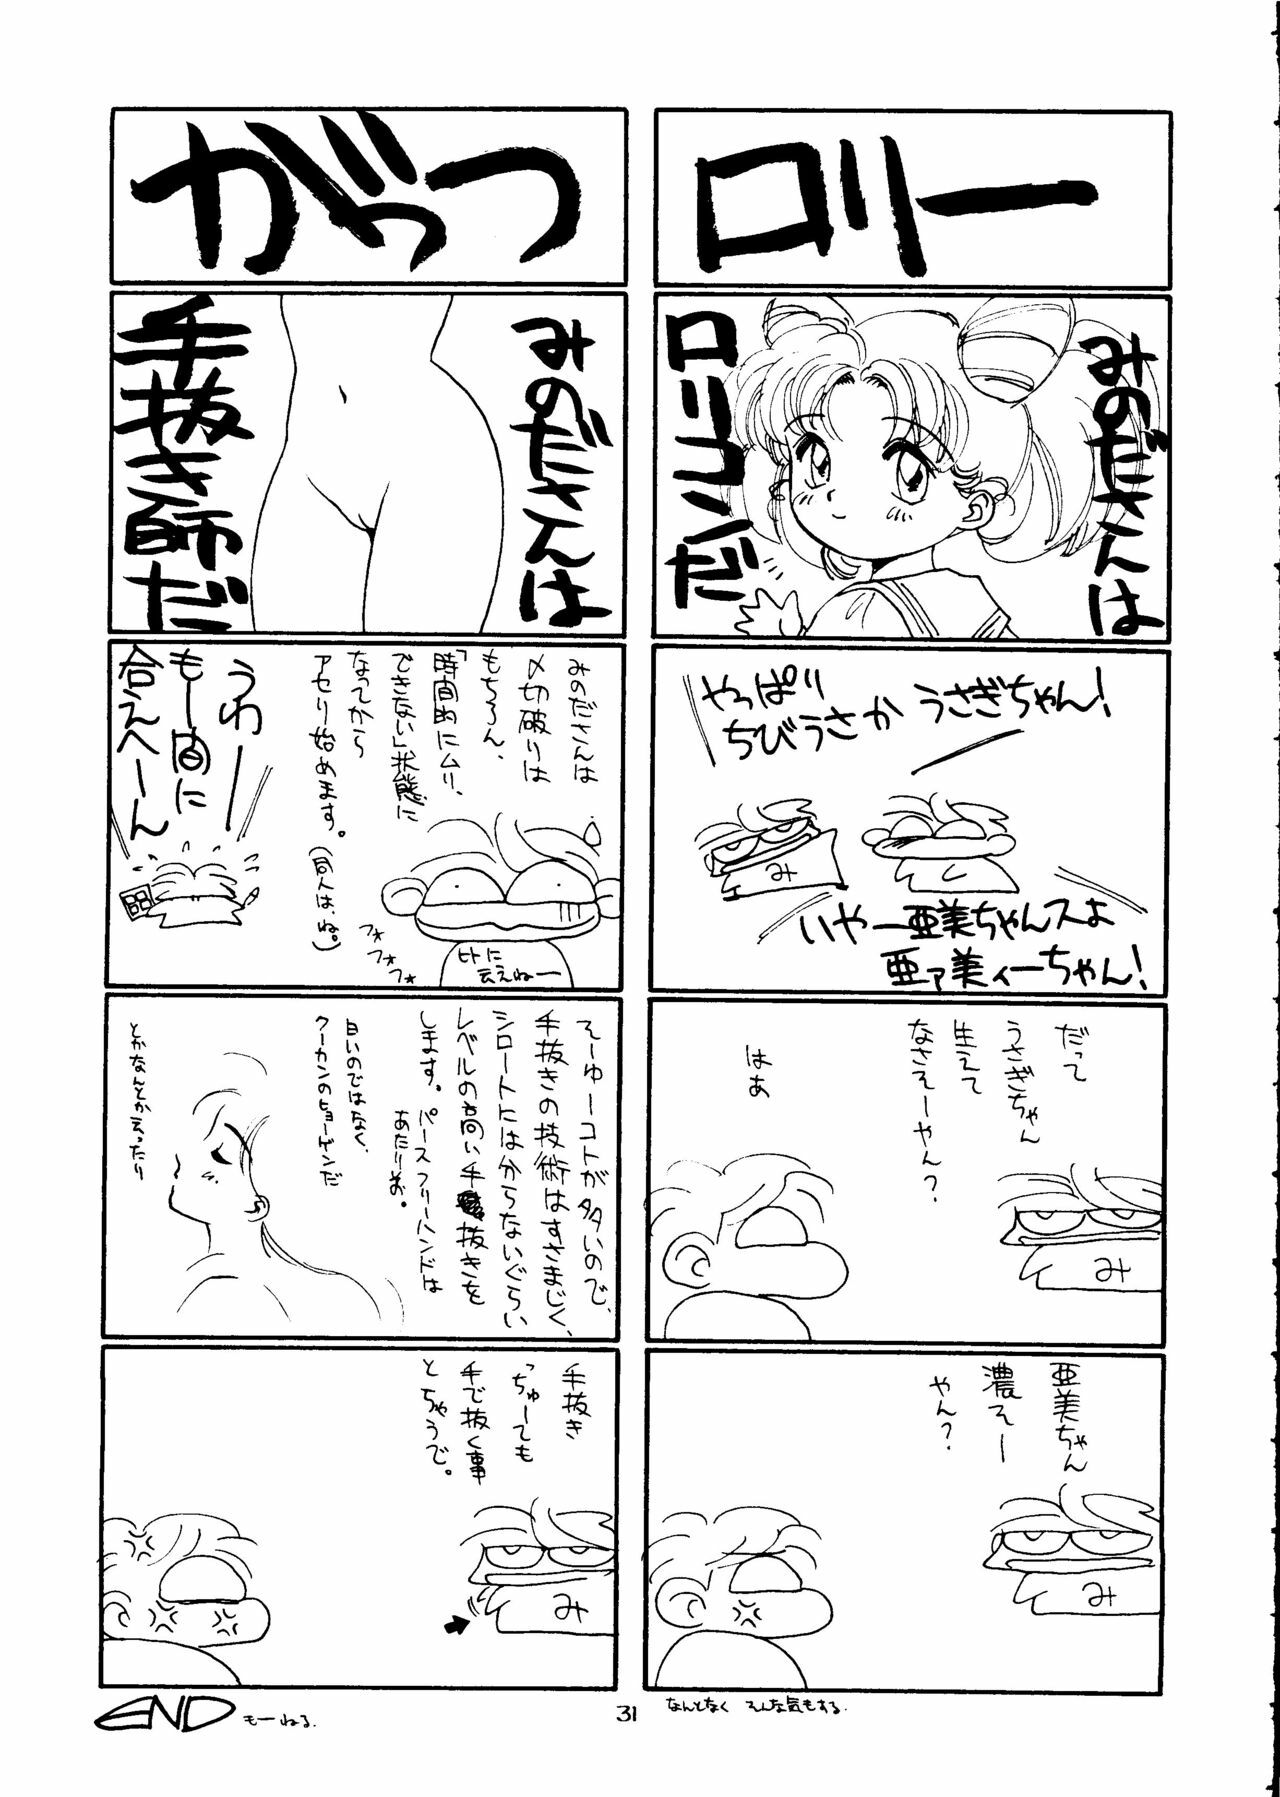 ロリー
みのださんは
ロリコンだ
やっぱり
ちびうさか うさぎちゃん!
み
し
いやー亜美ちゃんスよ
亜ァ美ィーちゃん!
だって
うさぎちゃん
生えて
なさそーやん?
はぁ
み
亜美ちゃん
濃そー
やん?
み
なんとなく そんな気もする.
がっつ
みのださんは
手抜き師だ
みのださんは
〆切破りは
もちろん、
「時間的にムリ、
できない」状態に
なってから
アセリ始めます。
(同人は、ね。)
うわー
もー間に
合えへーん
フォ
フォ
フォ
ヒトに
云えねー
そーゆーコトが多いので、
手抜きの技術はすさまじく、
シロートには分からないぐらい
レベルの高い手抜きを
します。パースフリーハンドは
あたりお。
白いのではなく、
クーカンのヒョーゲンだ
とかなんとか云ったり
手抜き
っちゅーても
手で抜く事
とちゃうで。
み
END
もーねる.
31